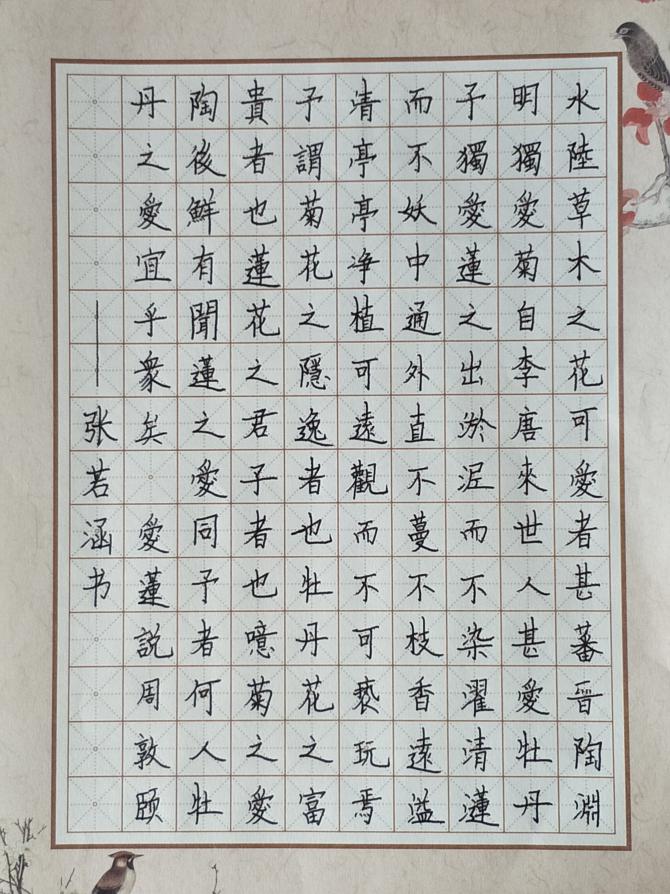 水陸草木之花可愛者甚蕃晉陶淵
明獨愛菊自李唐來世人甚愛牡丹
予獨愛蓮之出淤泥而不染濯清漣
而不妖中通外直不蔓不枝香遠溢
清亭亭净植可遠觀而不可亵玩焉
予謂菊花之隱逸者也牡丹花之富
貴者也蓮花之君子者也噫菊之愛
陶後鮮有聞蓮之愛同予者何人牡
丹之愛宜乎衆矣 愛蓮説周敦颐
——张若涵书